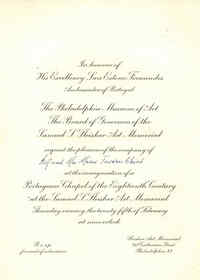 In honour of
His Excellency Luis Esteves Fernandes
Ambassador of Portugal
The Philadelphia Museum of Art
The Board of Governors of the
Samuel S. Fleisher Art Memorial
request the pleasure of the company of
Mr and Mrs
at the inauguration of a
Portuguese Chapel of the Eighteenth Century
at the Samuel S. Fleisher Art Memorial
Thursday evening, the twenty fifth of February
at nine o'clock
R.s.v.p.
Fleisher Art Memorial
Philadelphia 47